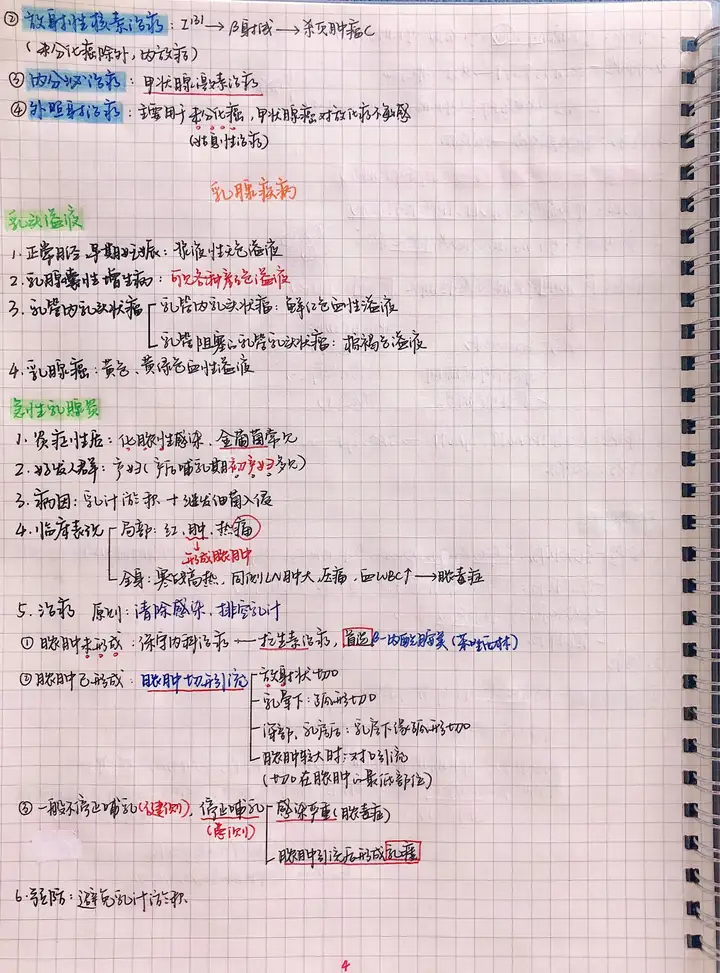 ② 放射性核素治疗：I¹³¹→β射线→杀死肿瘤C
（未分化癌除外，内放疗）
③ 内分泌治疗：甲状腺激素治疗
④ 外照射治疗：主要用于未分化癌，甲状腺癌对放化疗不敏感
（姑息性治疗）
乳腺疾病
乳头溢液
1. 正常月经、早期妊娠：浆液性无色溢液
2. 乳腺囊性增生病：可见各种颜色溢液
3. 乳管内乳头状瘤 乳管内乳头状瘤：鲜红色血性溢液
乳管阻塞的乳管乳头状瘤：棕褐色溢液
4. 乳腺癌：黄色、黄绿色血性溢液
急性乳腺炎
1. 炎症性质：化脓性感染，金葡菌常见
2. 好发人群：产妇（产后哺乳期初产妇多见）
3. 病因：乳汁淤积＋继发细菌入侵
4. 临床表现 局部：红、肿、热痛
↓
形成脓肿
全身：寒战高热，同侧LN肿大、压痛，血WBC↑→脓毒症
5. 治疗 原则：清除感染、排空乳汁
① 脓肿未形成：保守内科治疗←抗生素治疗，首选β-内酰胺类（苯唑西林）
② 脓肿已形成：脓肿切开引流 放射状切口
乳晕下：弧形切口
深部、乳房后：乳房下缘弧形切口
脓肿较大时：对口引流
（切口在脓肿的最低部位）
③ 一般不停止哺乳（健侧），停止哺乳 感染严重（脓毒症）
（患侧）
脓肿引流后形成乳瘘
6. 预防：避免乳汁淤积
4